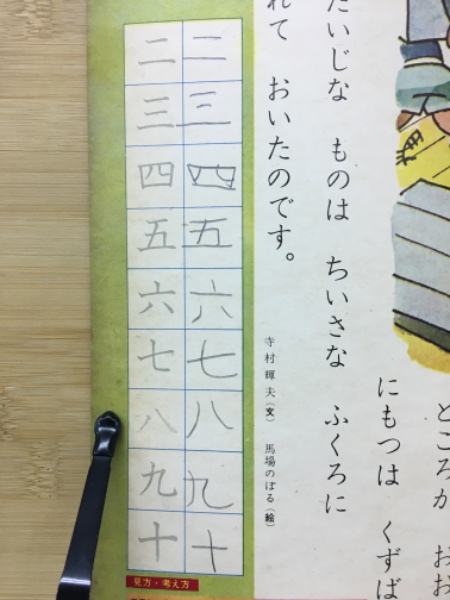 ところが おお
にもつは くずば
たいじな ものは ちいさな ふくろに
れて おいたのです。
寺村輝夫(文) 馬場のぼる(絵)
二 二
三 三
四 四
五 五
六 六
七 七
八 八
九 九
十 十
見方・考え方